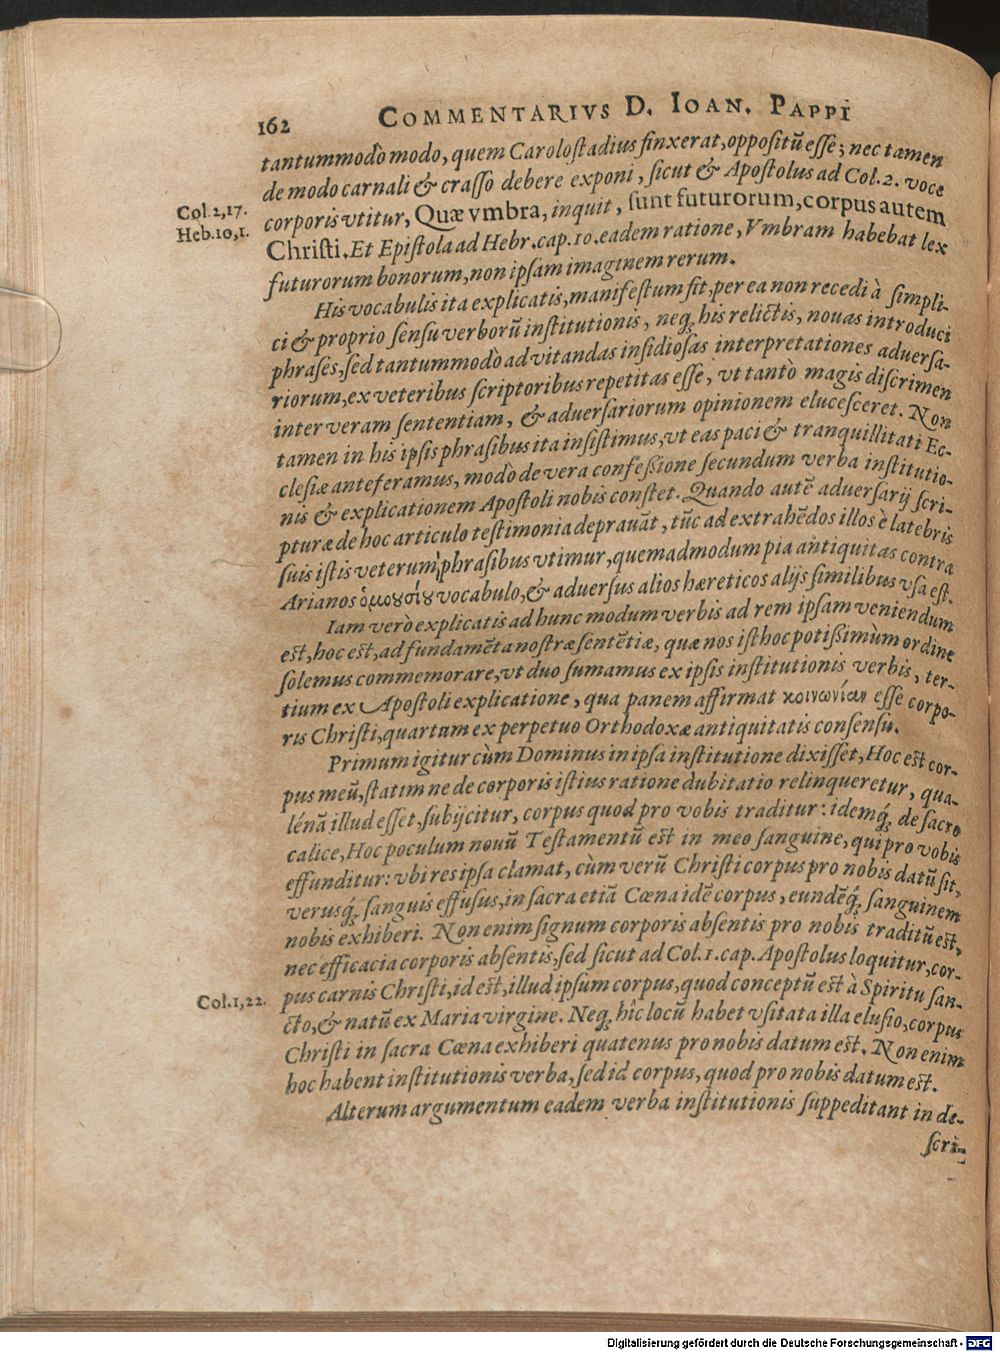 162 COMMENTARIVS D. IOAN. PAPPI
tantummodò modo, quem Carolostadius finxerat, oppositũ esse; nec tamen
de modo carnali & crasso debere exponi, sicut & Apostolus ad Col. 2. voce
Col. 2, 17.
corporis vtitur, Quæ vmbra, inquit, sunt futurorum, corpus autem
Heb. 10, 1.
Christi. Et Epistola ad Hebr. cap. 10. eadem ratione, Vmbram habebat lex
futurorum bonorum, non ipsam imaginem rerum.
His vocabulis ita explicatis, manifestum fit, per ea non recedi à simpli-
ci & proprio sensu verborũ institutionis, neq; his relictis, nouas introduci
phrases, sed tantummodò ad vitandas insidiosas interpretationes aduersa-
riorum, ex veteribus scriptoribus repetitas esse, vt tantò magis discrimen
inter veram sententiam, & aduersariorum opinionem elucesceret. Non
tamen in his ipsis phrasibus ita insistimus, vt eas paci & tranquillitati Ec-
clesiæ anteferamus, modò de vera confessione secundum verba institutio-
nis & explicationem Apostoli nobis constet. Quando autẽ aduersarij scri-
pturæ de hoc articulo testimonia deprauãt, tũc ad extrahẽdos illos è latebris
suis istis veterum phrasibus vtimur, quemadmodum pia antiquitas contra
Arianos ὁμουσίου vocabulo, & aduersus alios hæreticos alijs similibus vsa est.
Iam verò explicatis ad hunc modum verbis ad rem ipsam veniendum
est, hoc est, ad fundamẽta nostræ sentẽtiæ, quæ nos isthoc potissimùm ordine
solemus commemorare, vt duo sumamus ex ipsis institutionis verbis, ter-
tium ex Apostoli explicatione, qua panem affirmat κοινωνίαν esse corpo-
ris Christi, quartum ex perpetuo Orthodoxæ antiquitatis consensu.
Primum igitur cùm Dominus in ipsa institutione dixisset, Hoc est cor-
pus meũ, statim ne de corporis istius ratione dubitatio relinqueretur, qua-
lénã illud esset, subijcitur, corpus quod pro vobis traditur: idemq́; de sacro
calice, Hoc poculum nouũ Testamentũ est in meo sanguine, qui pro vobis
effunditur: vbi res ipsa clamat, cùm verũ Christi corpus pro nobis datũ sit,
verusq́; sanguis effusus, in sacra etiã Cœna idẽ corpus, eundẽq́; sanguinem
nobis exhiberi. Non enim signum corporis absentis pro nobis traditũ est,
nec efficacia corporis absentis, sed sicut ad Col. 1. cap. Apostolus loquitur, cor-
Col. 1, 22.
pus carnis Christi, id est, illud ipsum corpus, quod conceptũ est à Spiritu san-
cto, & natũ ex Maria virgine. Neq; hîc locũ habet vsitata illa elusio, corpus
Christi in sacra Cœna exhiberi quatenus pro nobis datum est. Non enim
hoc habent institutionis verba, sed id corpus, quod pro nobis datum est.
Alterum argumentum eadem verba institutionis suppeditant in de-
scri-
Digitalisierung gefördert durch die Deutsche Forschungsgemeinschaft - DFG